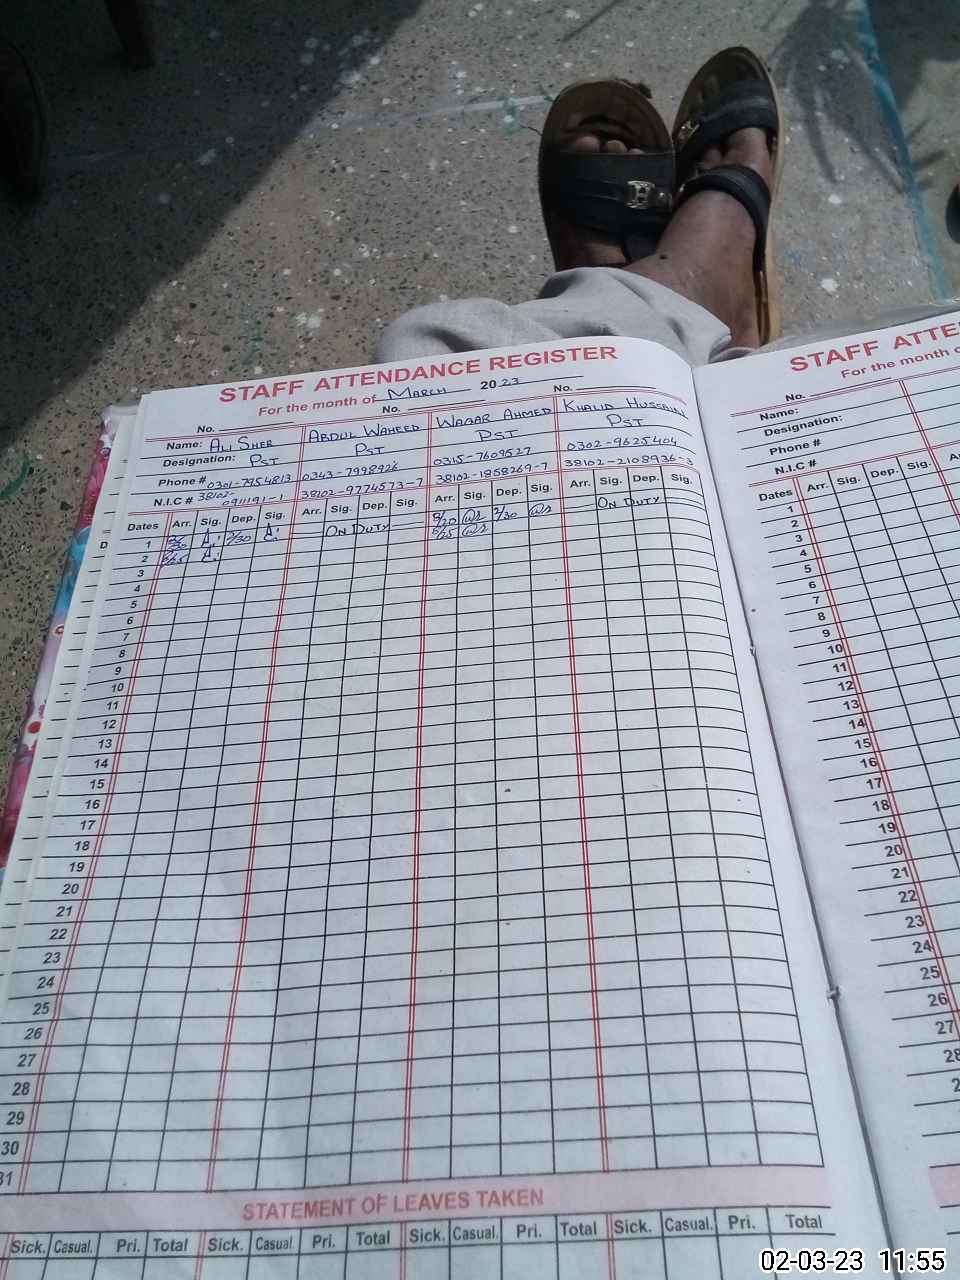 STAFF ATTENDANCE REGISTER
For the month of MARCH 2023
No. No. No.
Name: ALI SHER ABDUL WAHEED WAQAR AHMED KHALID HUSSAIN
Designation: PST PST PST PST
Phone # 0301-7954813 0343-7998926 0315-7609527 0302-9625404
N.I.C # 38102-0911191-1 38102-9774573-7 38102-1958269-7 38102-2108936-3
Dates Arr. Sig. Dep. Sig. Arr. Sig. Dep. Sig. Arr. Sig. Dep. Sig. Arr. Sig. Dep. Sig.
1 8/30 2/30 ON DUTY 8/20 2/30 ON DUTY
2 8/25 8/25
3
4
5
6
7
8
9
10
11
12
13
14
15
16
17
18
19
20
21
22
23
24
25
26
27
28
29
30
31
STATEMENT OF LEAVES TAKEN
Sick. Casual. Pri. Total Sick. Casual Pri. Total Sick. Casual. Pri. Total Sick. Casual. Pri. Total
STAFF
For the month
No.
Name:
Designation:
Phone #
N.I.C #
Dates Arr. Sig. Dep. Sig.
1
2
3
4
5
6
7
8
9
10
11
12
13
14
15
16
17
18
19
20
21
22
23
24
25
26
27
28
02-03-23 11:55